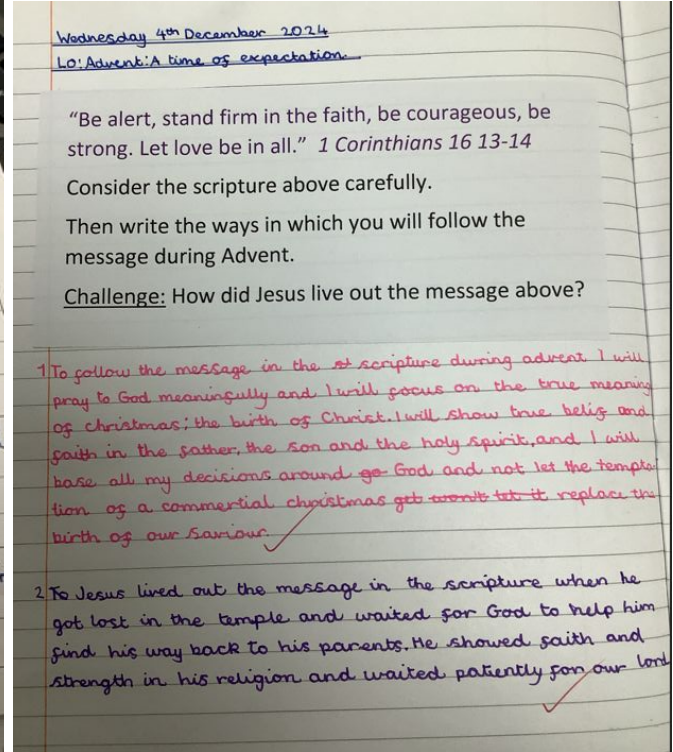 Wednesday 4th December 2024
LO: Advent: A time of expectation
“Be alert, stand firm in the faith, be courageous, be
strong. Let love be in all.” 1 Corinthians 16 13-14
Consider the scripture above carefully.
Then write the ways in which you will follow the
message during Advent.
Challenge: How did Jesus live out the message above?
1 To follow the message in the st scripture during advent I will
pray to God meaningfully and I will focus on the true meaning
of christmas; the birth of Christ. I will show true belif and
faith in the father, the son and the holy spirit, and I will
base all my decisions around go God and not let the tempta
tion of a commertial christmas get won't let it replace the
birth of our Saviour.
2 To Jesus lived out the message in the scripture when he
got lost in the temple and waited for God to help him
find his way back to his parents. He showed faith and
strength in his religion and waited patiently for our lord